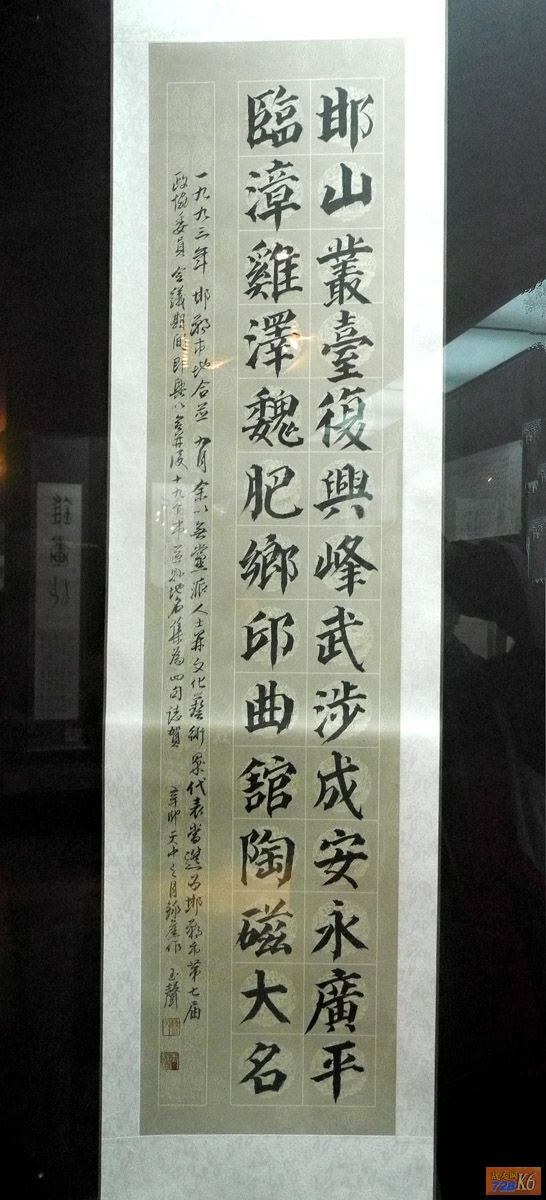 邯山叢臺復興峰武涉成安永廣平
臨漳雞澤魏肥鄉邱曲館陶磁大名
一九九三年邯鄲市地合並九月余以無黨派人士兼文化藝術界代表當選為邯鄲市第七屆
政協委員會議期間即興以合并後十九個市區縣地名集為四句誌賀 辛卯天中之月 作 玉聲
728K6